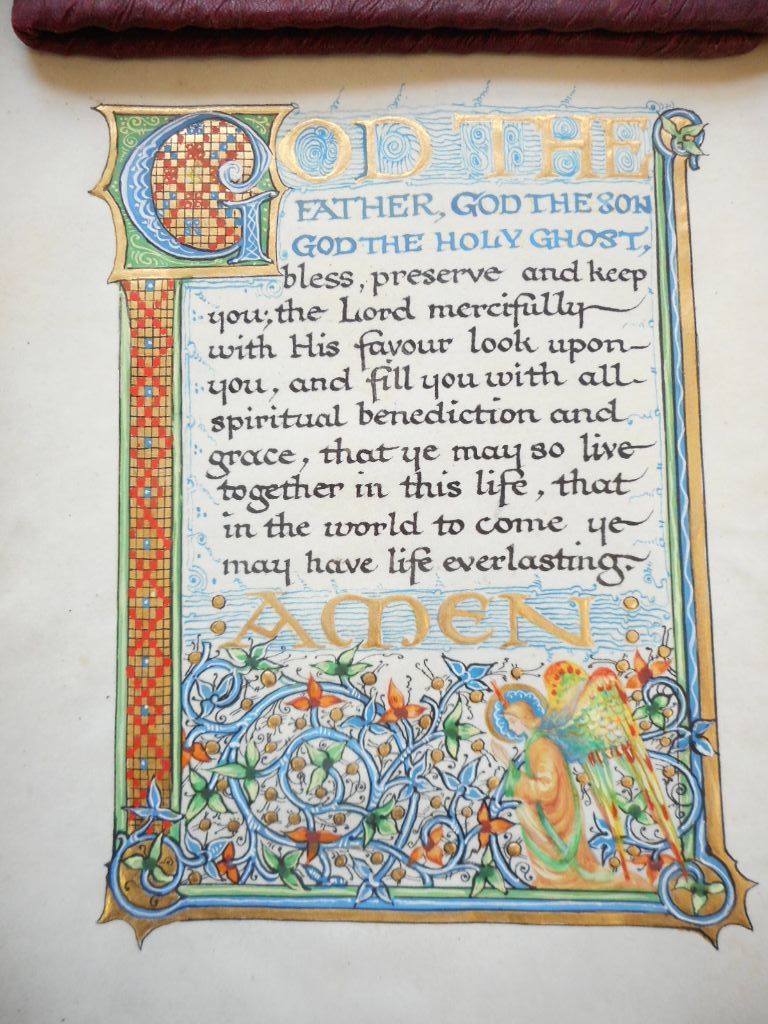 GOD THE
FATHER, GOD THE SON
GOD THE HOLY GHOST,
bless, preserve and keep
you; the Lord mercifully
with His favour look upon
you, and fill you with all
spiritual benediction and
grace, that ye may so live
together in this life, that
in the world to come ye
may have life everlasting.
: AMEN :